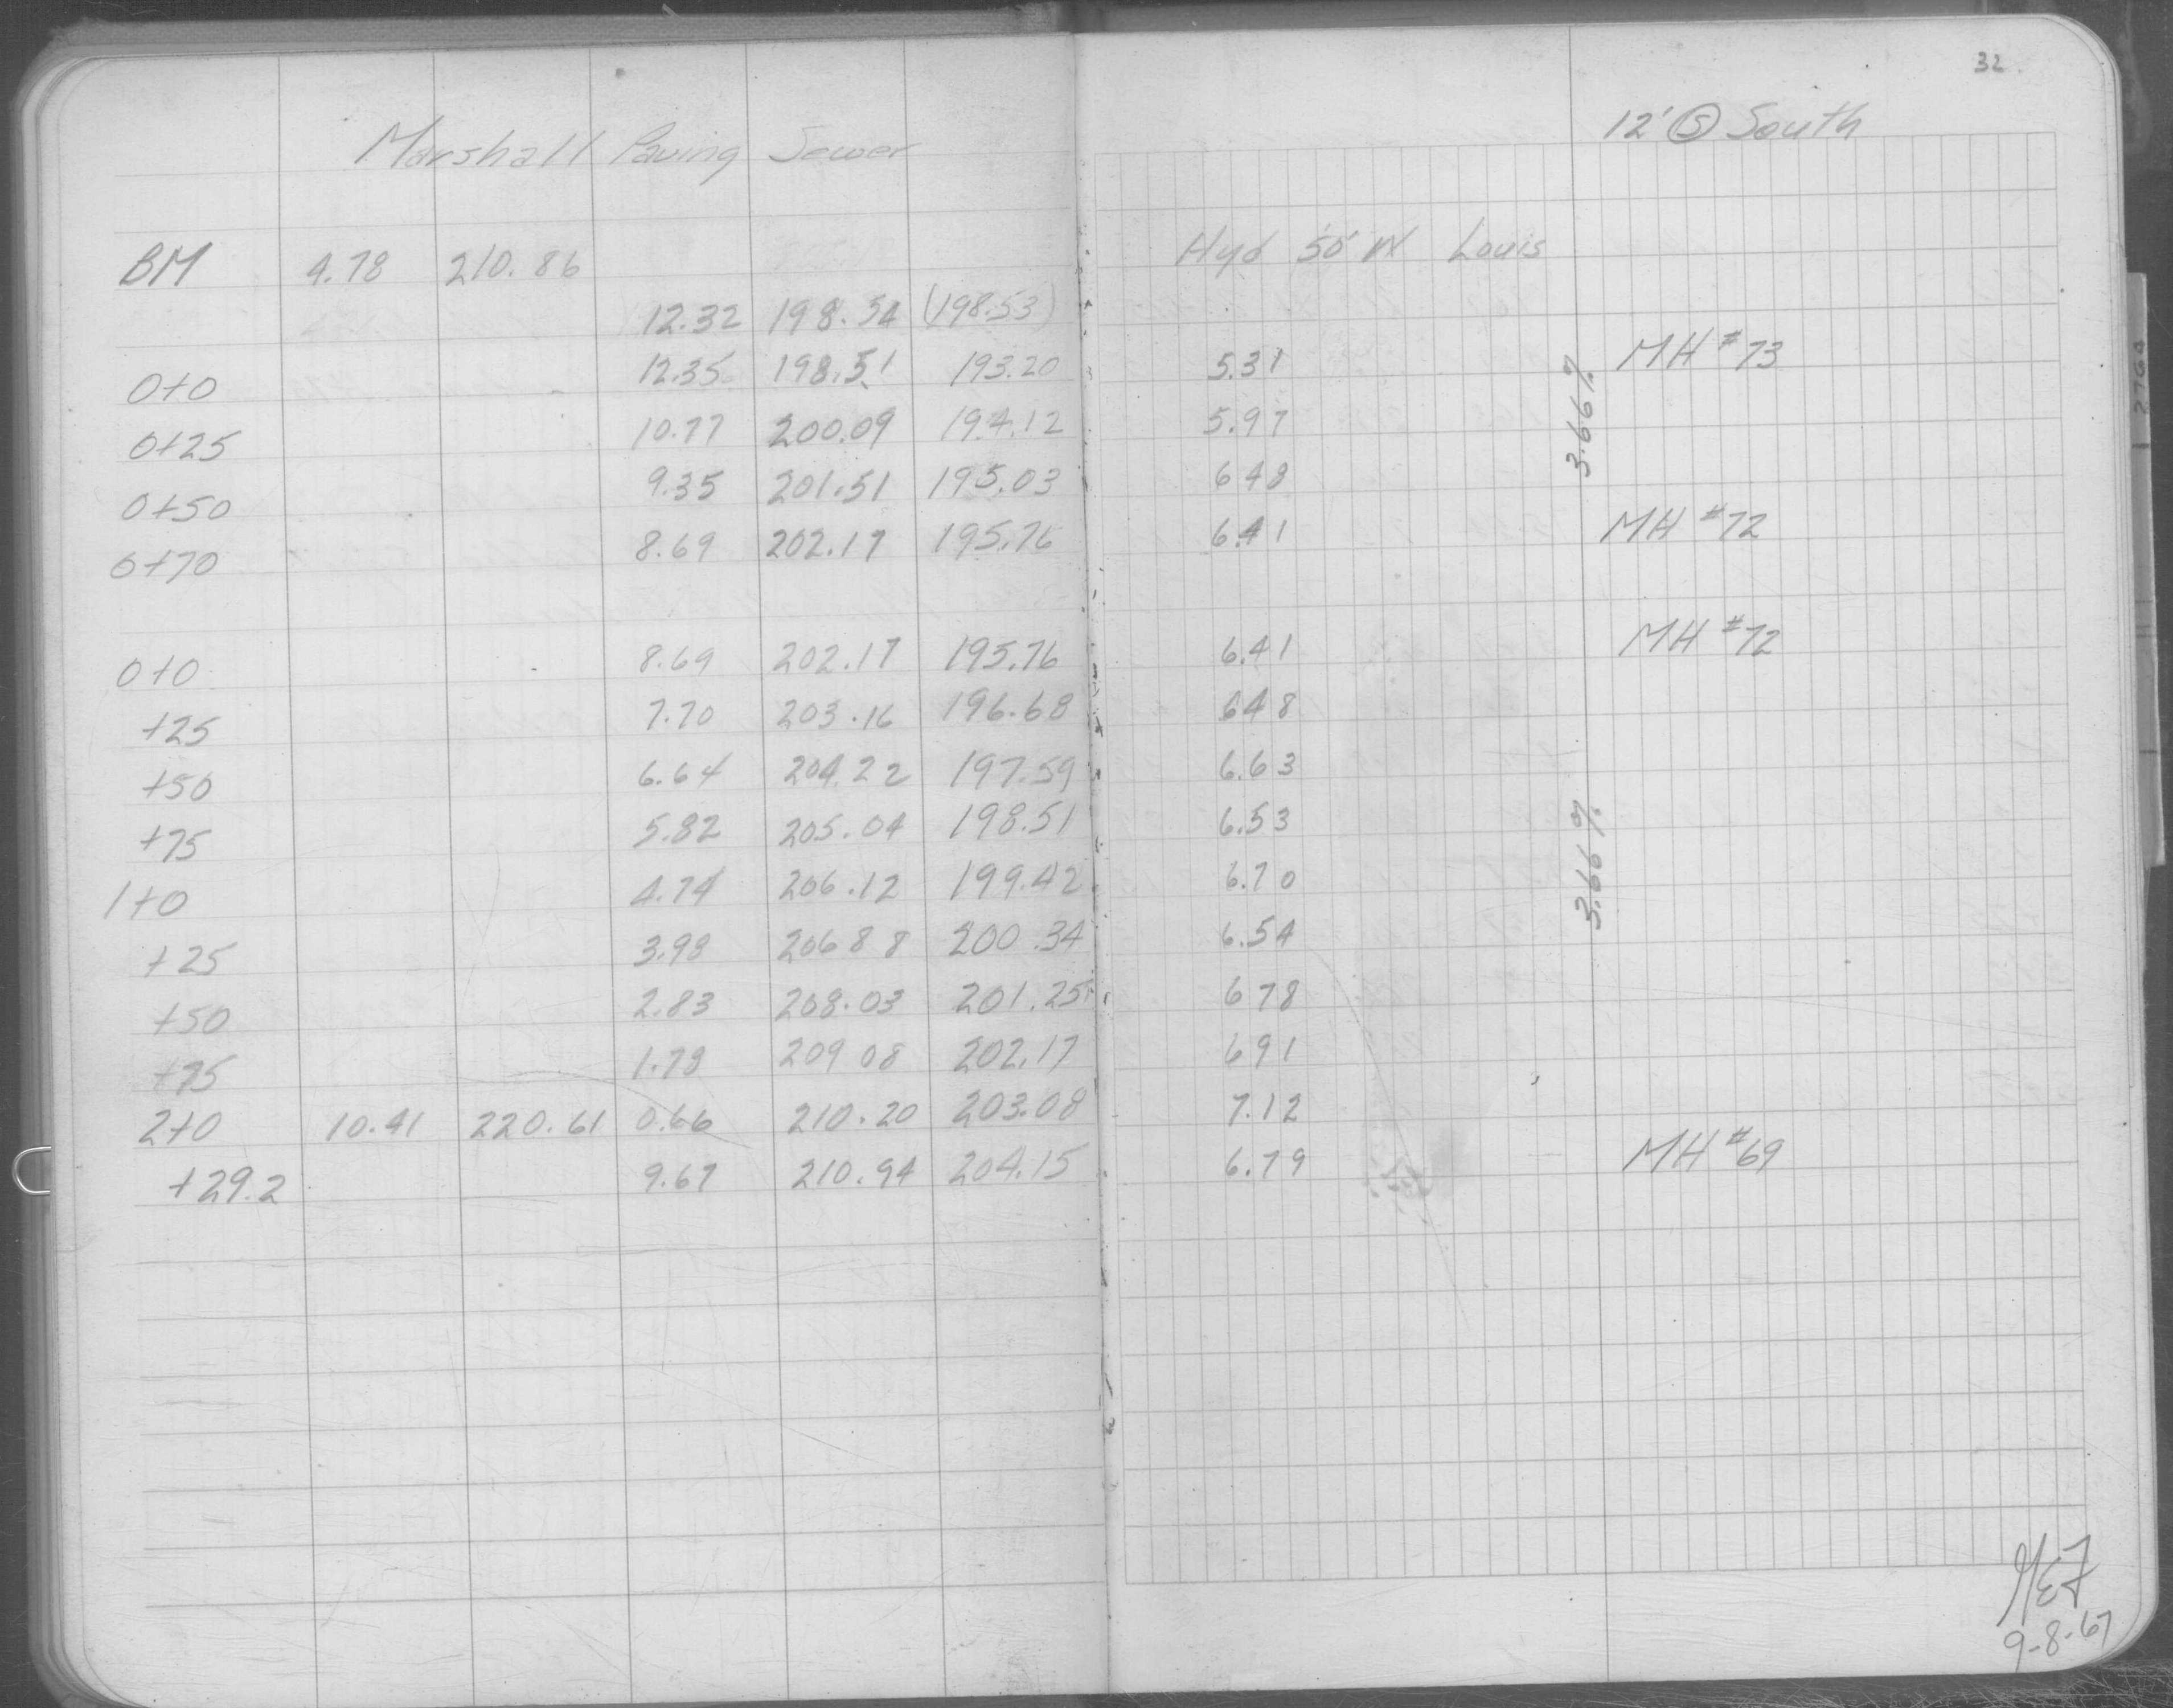 32
Marshall Paving Sewer 12' Ⓢ South
BM 4.78 210.86 Hyd 50' W Louis
12.32 198.54 (198.53)
0+0 12.35 198.51 193.20 5.31 MH #73
0+25 10.77 200.09 194.12 5.97
3.66%
0+50 9.35 201.51 195.03 648
0+70 8.69 202.17 195.76 6.41 MH #72
0+0 8.69 202.17 195.76 6.41 MH #72
+25 7.70 203.16 196.68 648
+50 6.64 204.22 197.59 6.63
+75 5.82 205.04 198.51 6.53
3.66%
1+0 4.74 206.12 199.42 6.70
+25 3.98 20688 200.34 6.54
+50 2.83 208.03 201.25 678
+75 1.78 209 08 202.17 691
2+0 10.41 220.61 0.66 210.20 203.08 7.12
+29.2 9.67 210.94 204.15 6.79 MH #69
9-8-67